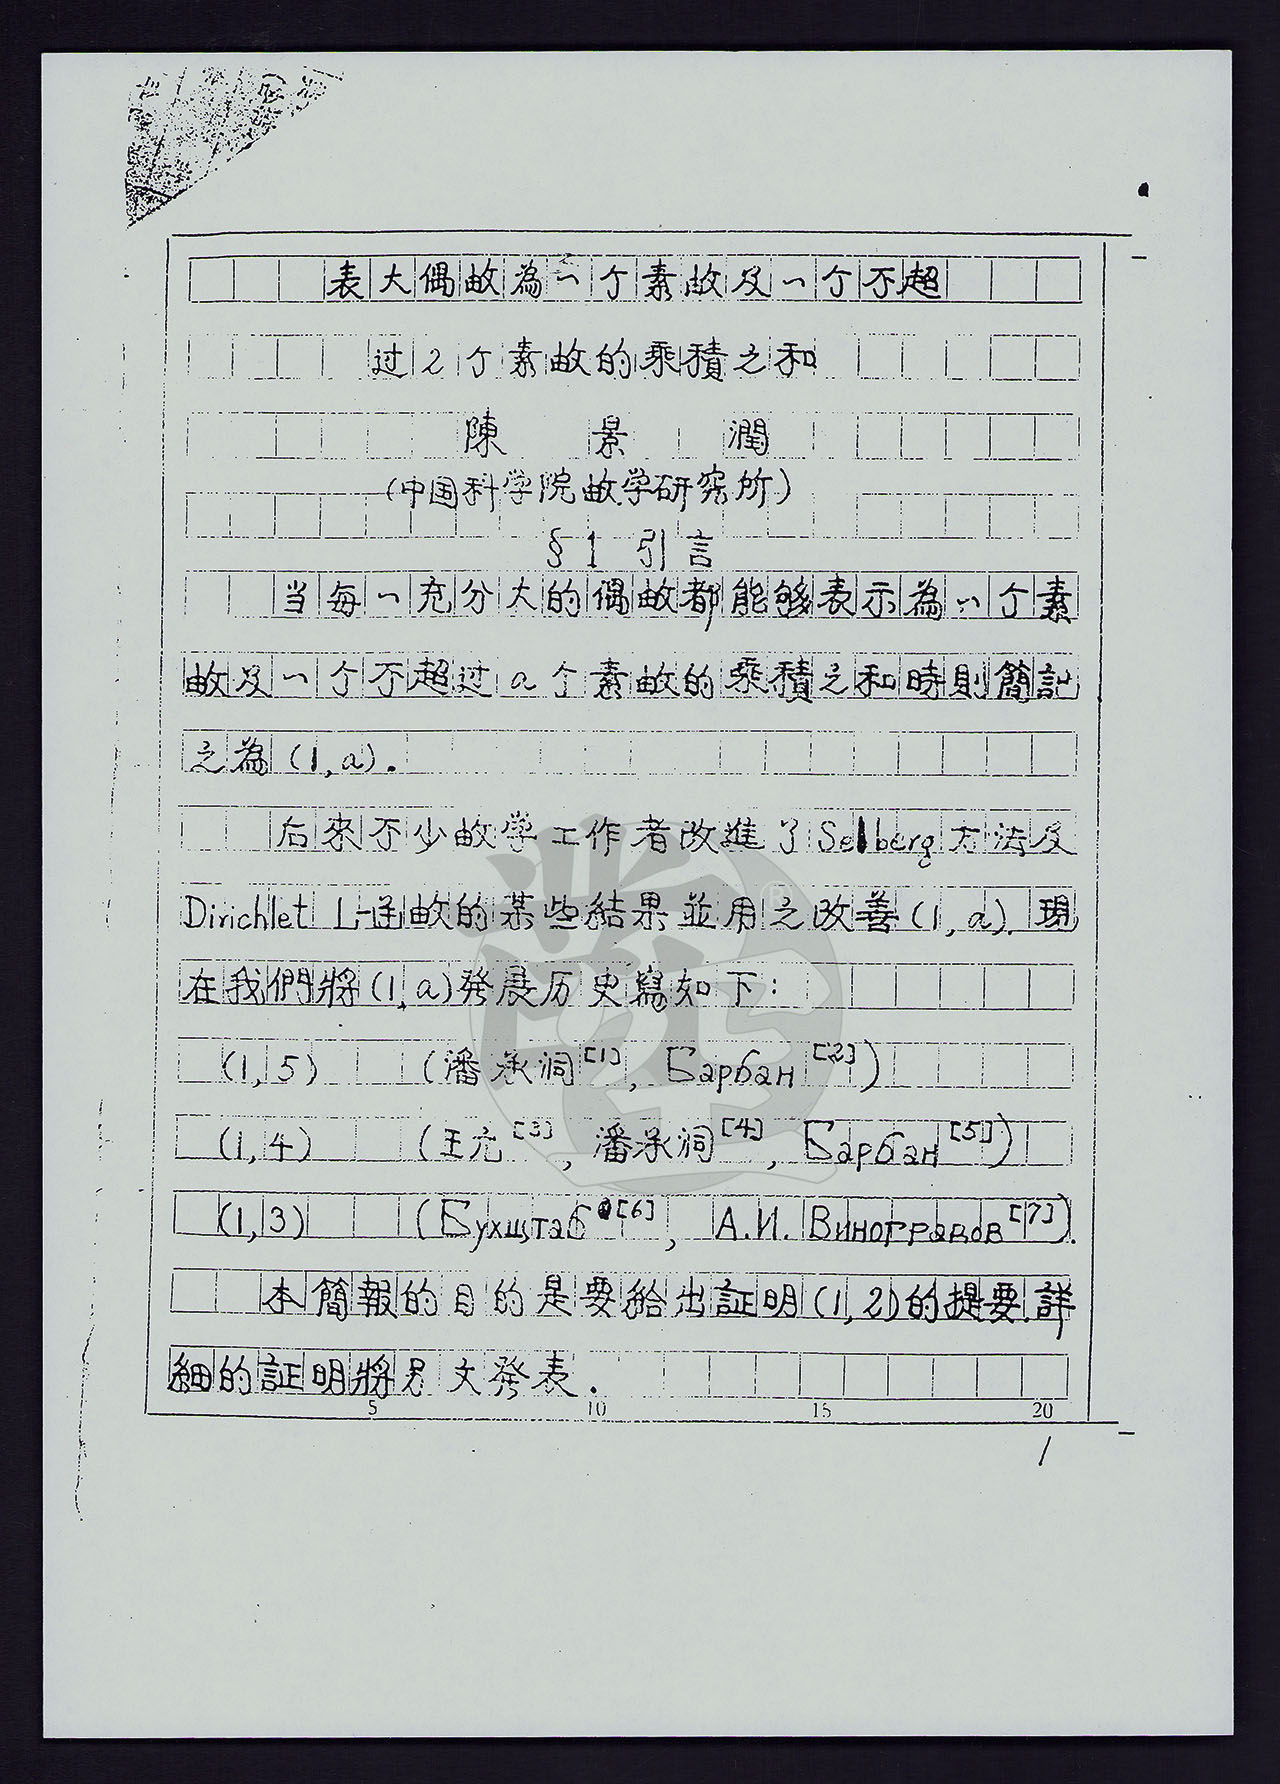 表大偶数為一个素数及一个不超
过2个素数的乘積之和
陳景潤
(中国科学院数学研究所)
§1 引言
当每一充分大的偶数都能够表示為一个素
数及一个不超过a个素数的乘積之和時則簡記
之為(1,a).
后來不少数学工作者改進了Selberg方法及
Dirichlet L-函数的某些結果並用之改善(1,a).現
在我們將(1,a)發展历史寫如下:
(1,5) (潘承洞[1], Барбан[2])
(1,4) (王元[3], 潘承洞[4], Барбан[5])
(1,3) (Бухштаб[6], А.И. Виноградов[7]).
本簡報的目的是要給出証明(1,2)的提要.詳
細的証明將另文發表.
5 10 15 20
1